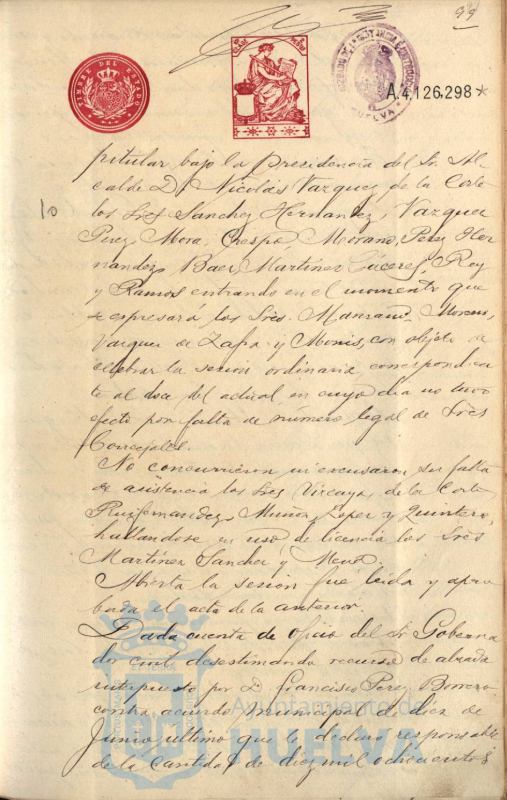 99
TIMBRE DEL ESTADO
A.4,126.298*
HUELVA
pitular bajo la Presidencia del Sr. Al
calde D. Nicolás Vazquez de la Corte
los Sres Sanchez Hernandez, Vazquez
10
Perez, Mora, Crespo, Morano, Perez Her
nandez, Baer, Martinez Cáceres, Rey
y Ramos entrando en el momento que
se expresará los Sres. Manzano, Moreno,
Vazquez de Zafra y Monis, con objeto de
celebrar la sesion ordinaria correspondien
te al doce del actual en cuyo dia no tuvo
efecto por falta de número legal de Sres
Concejales.
No concurrieron ni excusaron su falta
de asistencia los Sres Vizcaya, de la Corte
Ruifernandez, Muñoz, Lopez y Quintero,
hallandose en uso de licencia los Sres
Martinez Sanchez y
Abierta la sesion fue leida y apro
bada el acta de la anterior.
Dada cuenta de oficio del Sr Goberna
dor civil desestimando recurso de alzada
interpuesto por D. Francisco Perez Borrero
contra acuerdo municipal de diez de
Junio último que le declaró responsable
de la cantidad de diez mil ochocientos
Ayuntamiento de
HUELVA